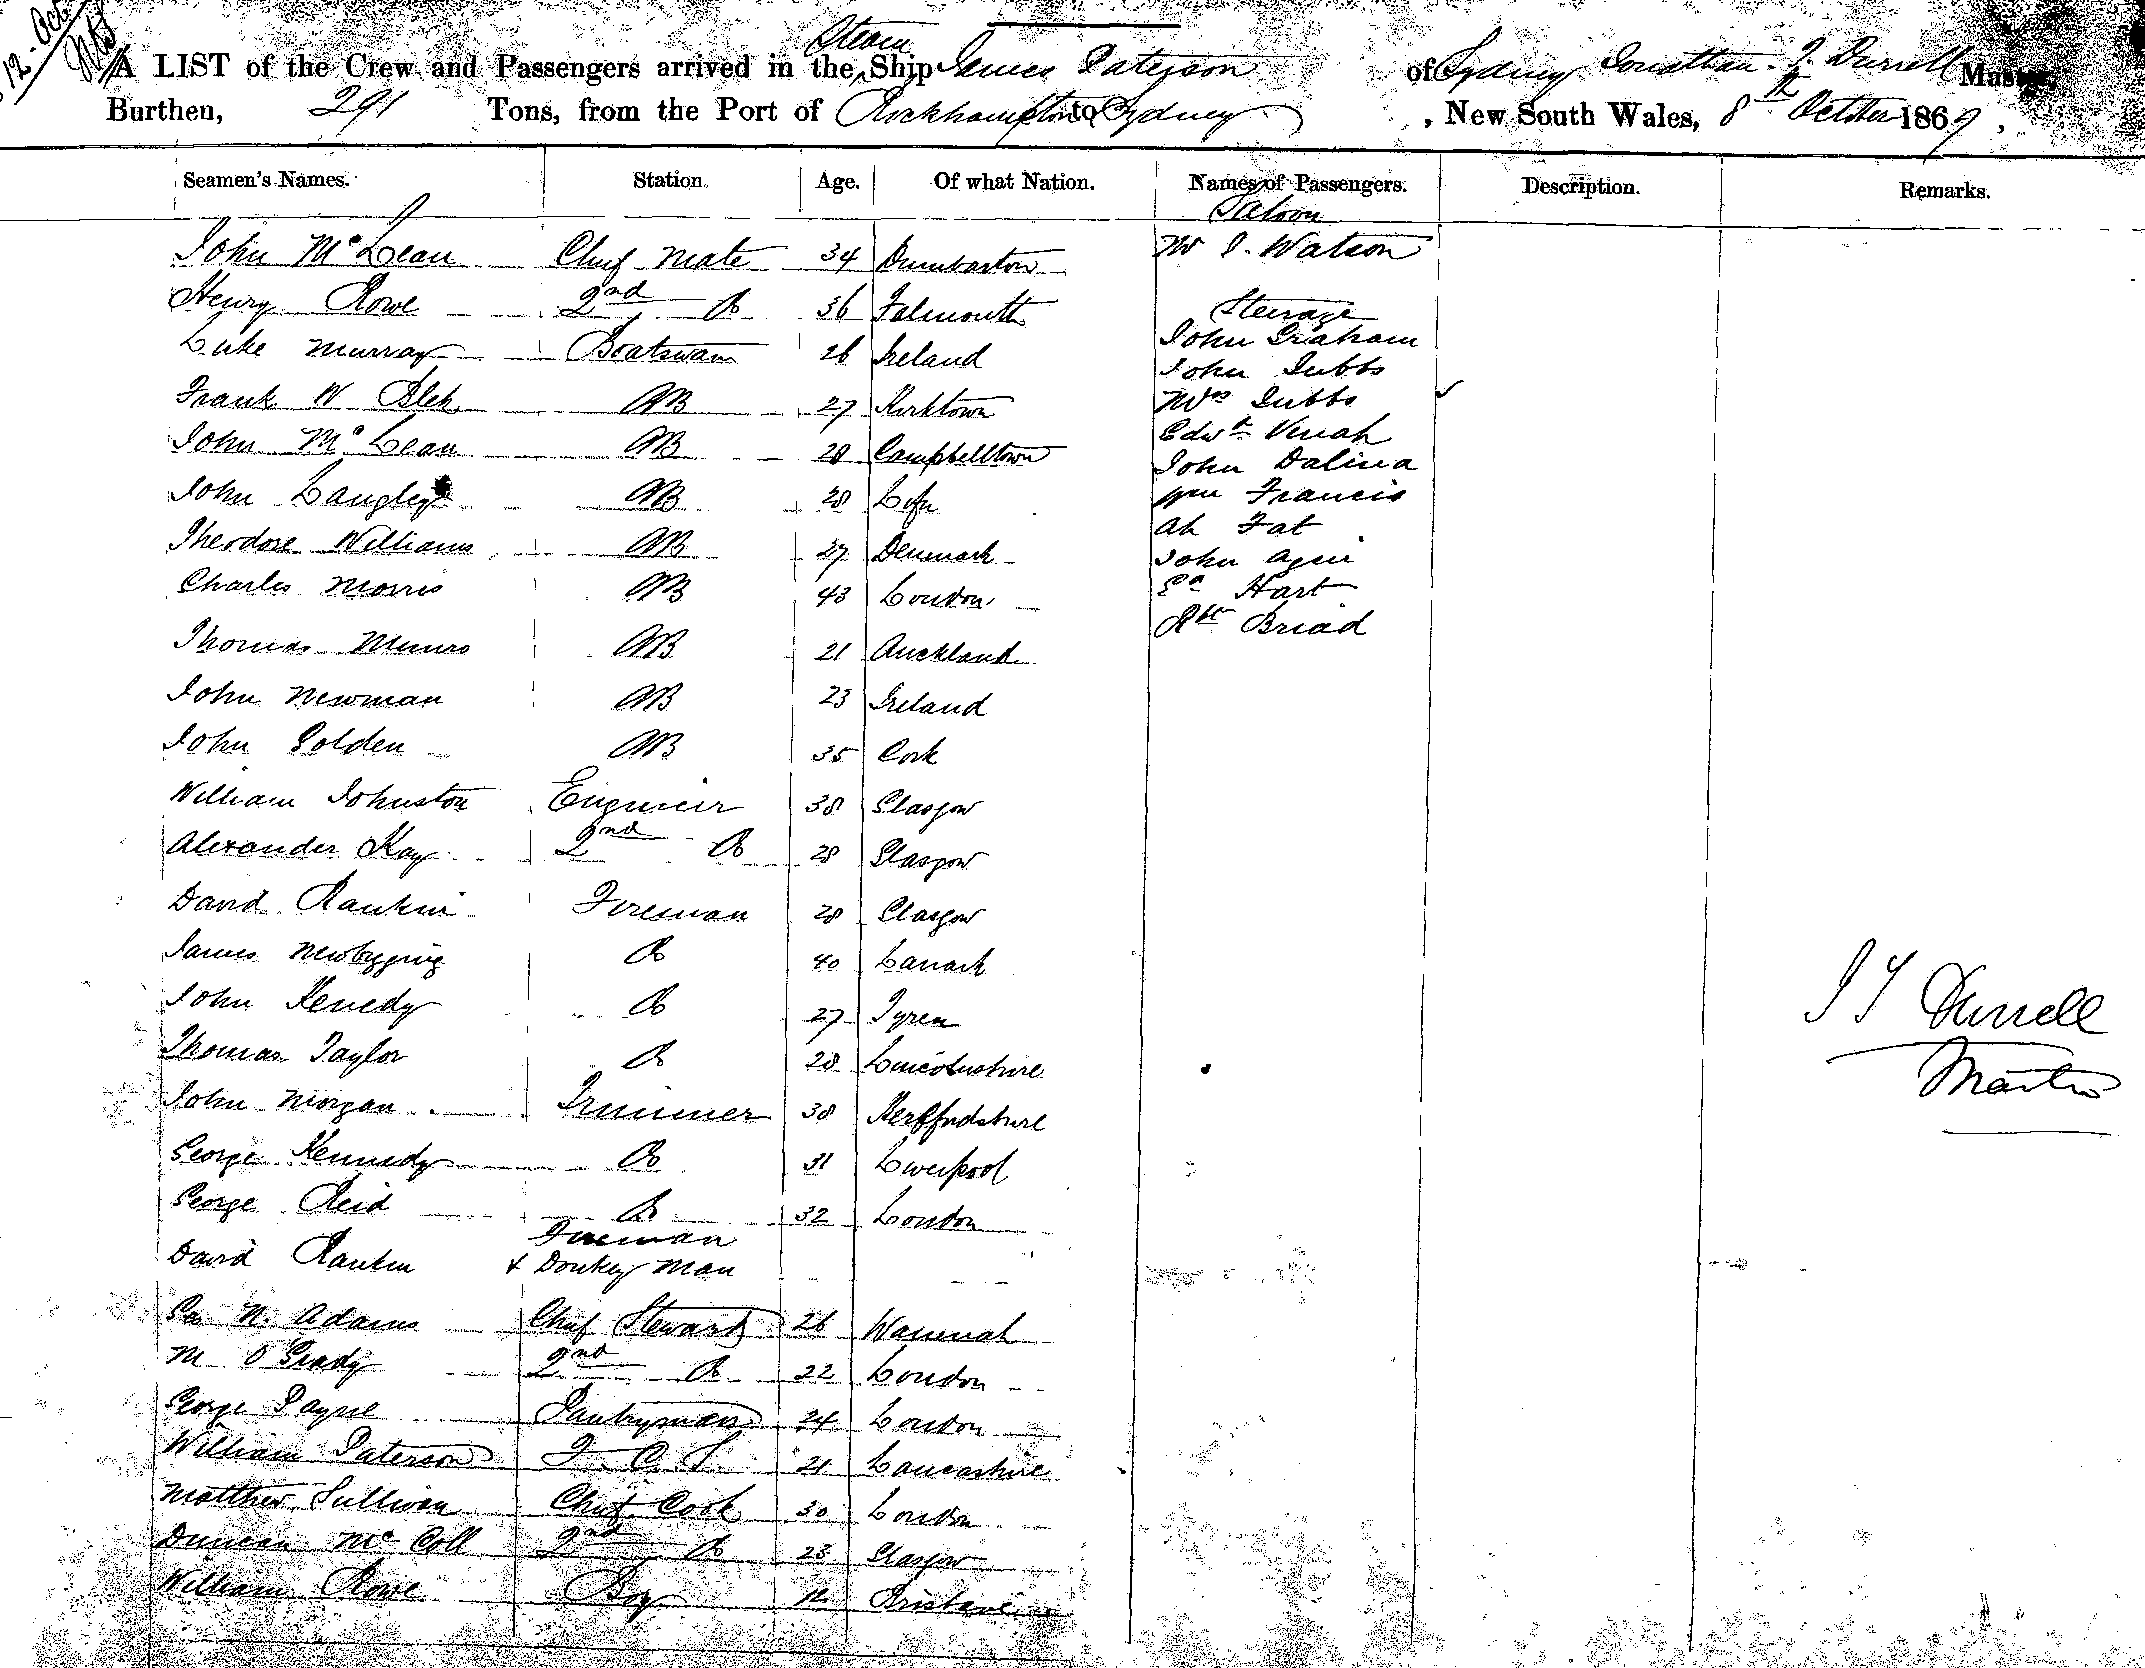 12 Oct
A LIST of the Crew and Passengers arrived in the Steam Ship James Paterson of Sydney Jonathan. T. Durrell Master,
Burthen, 291 Tons, from the Port of Rockhampton to Sydney , New South Wales, 8th October 1869,
Seamen's Names. Station. Age. Of what Nation. Names of Passengers. Description. Remarks.
Saloon
John McLean Chief Mate 34 Dumbarton Mr J. Watson
Henry Rowe 2nd Do 36 Falmouth Steerage
John Graham
Luke Murray Boatswain 26 Ireland John Dubbs
Frank W AB 27 Kirktown Mrs Dubbs
Edwd
John McLean AB 28 Campbelltown John Dalina
John Langley AB 28 Wm Francis
Ah Fat
Theodore Williams AB 27 Denmark John
Charles Morris AB 43 London Hart
Rbt Briad
Thomas Munro AB 21 Auckland
John Newman AB 23 Ireland
John Golden AB 35 Cork
William Johnston Engineer 38 Glasgow
Alexander Kay 2nd Do 28 Glasgow
David Rankin Fireman 28 Glasgow
James Newbyging Do 40 Lanark
John Kenedy Do 27 J T Durrell
Thomas Taylor Do 28 Lincolnshire Master
John Morgan Trimmer 38 Herffordshire
George Kennedy Do 31 Liverpool
George Reid Do 32 London
Fireman
David Rankin & Donkey Man
Geo N. Adams Chief Steward 26
M O'Grady 2nd Do 22 London
George Payne Pantryman 24 London
William Paterson F. C. S. 21 Lancashire
Matthew Sullivan Chief Cook 30 London
Duncan McColl 2nd Do 23 Glasgow
William Rowe Boy Brisbane